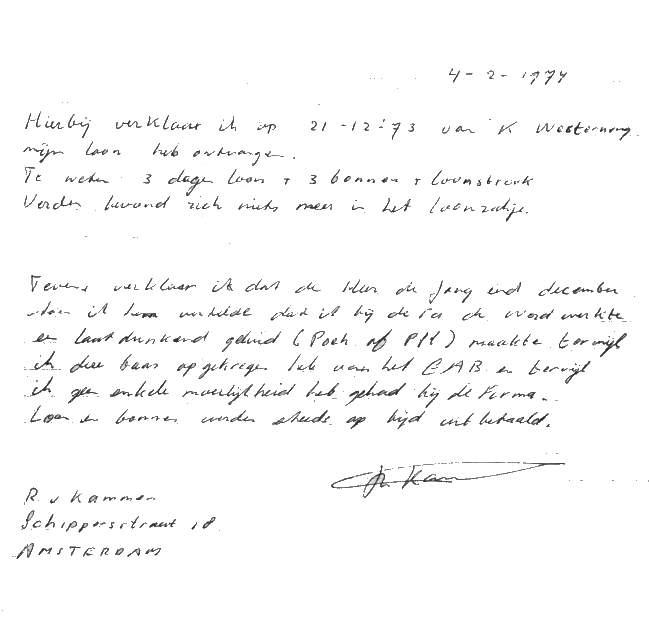 4-2-1974
Hierbij verklaar ik op 21-12-'73 van K Westerweg
mijn loon heb ontvangen.
Te weten 3 dagen loon + 3 bonnen + loonstrook
Verder bevond zich niets meer in het loonzakje.
Tevens verklaar ik dat de Heer de Jong eind december
toen ik hem vertelde dat ik bij de Fa de Woord werkte
een laatdunkend geluid (Poeh of Pff) maakte terwijl
ik deze baas opgekregen heb van het GAB en terwijl
ik geen enkele moeilijkheid heb gehad bij de Firma.
Loon en bonnen werden steeds op tijd uitbetaald.
R. v Kammen
Schippersstraat 18
AMSTERDAM